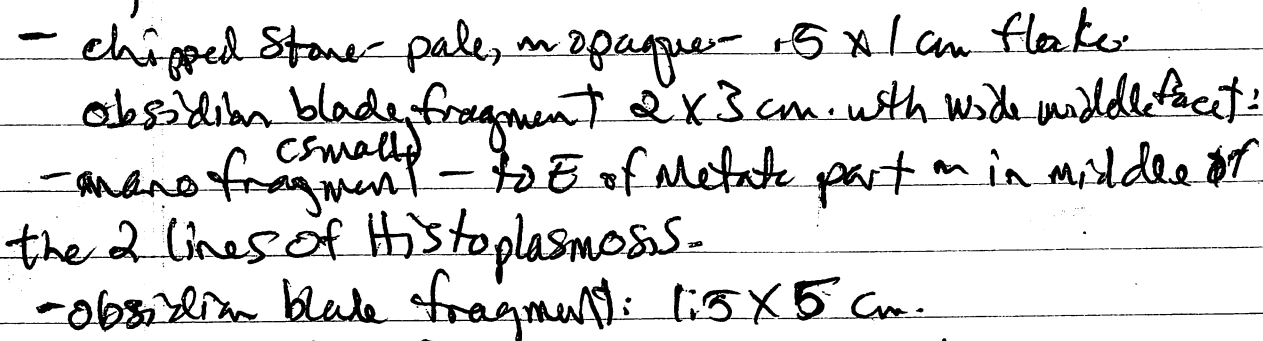 - chipped stone- pale, opaque- .5 x 1 cm flake.
obsidian blade fragment 2 x 3 cm. with wide middle facet:
(small)
- mano fragment - to E of Metate part in middle of
the 2 lines of Histoplasmosis-
- obsidian blade fragment: 1.5 X 5 cm.